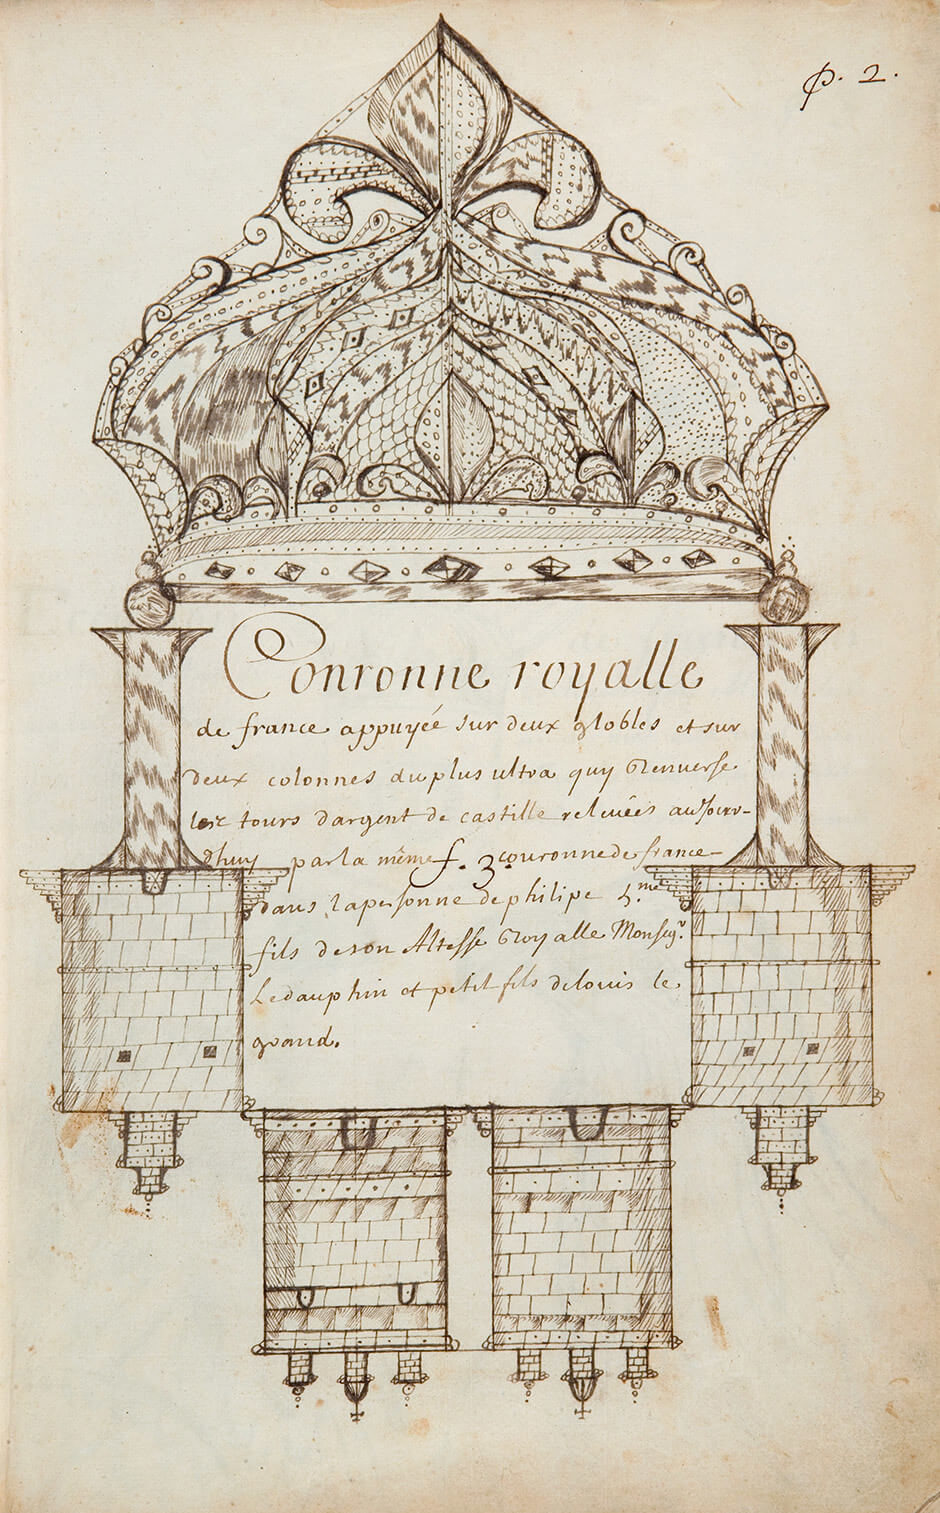 P. 2.
Couronne royalle
de france appuyée sur deux globles et sur
deux colonnes du plus ultra quy Renverse
tours dargent de castille relevées aujour-
dhuy par la même f. 3. couronne de france
dans la personne de philipe 5.me
fils de son Altesse Royalle Monseigr.
Le dauphin et petit fils de louis le
grand.